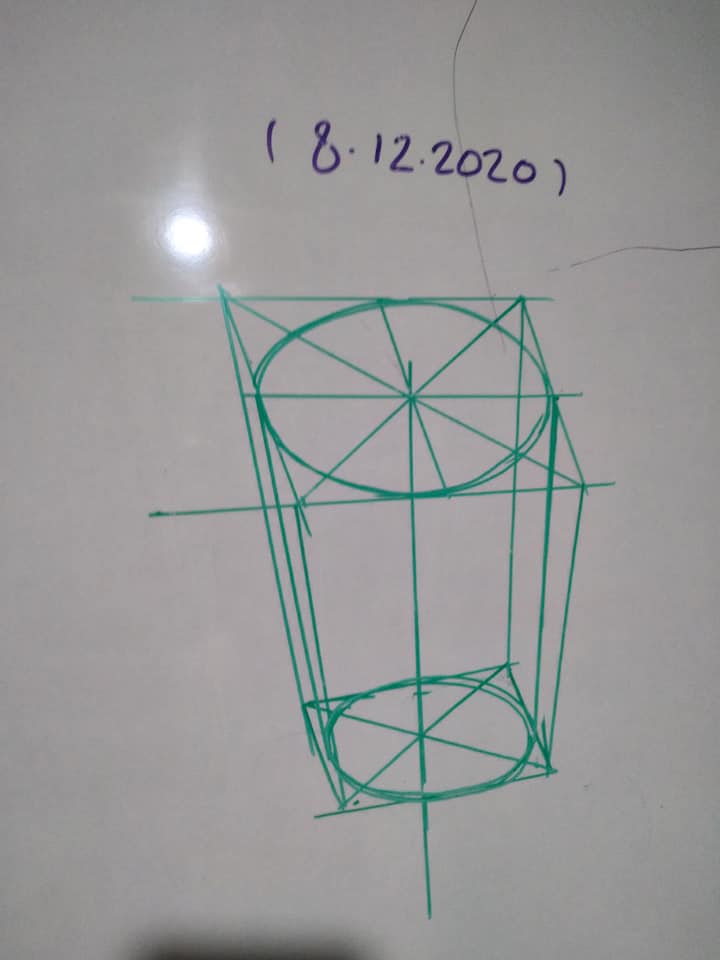 ( 8.12.2020 )